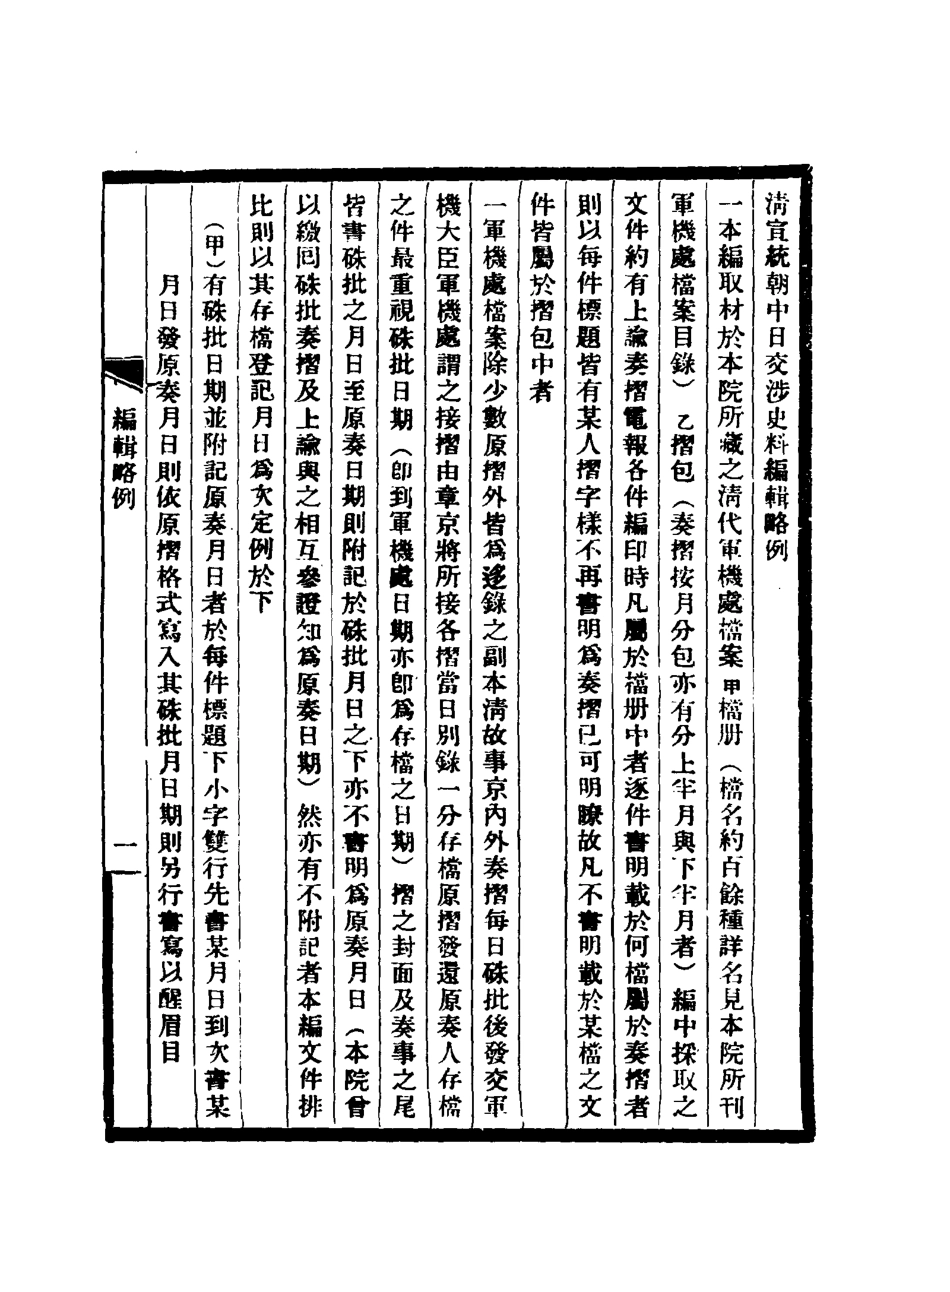 清宣統朝中日交涉史料編輯略例
一本編取材於本院所藏之清代軍機處檔案甲檔册（檔名約百餘種詳名見本院所刊
軍機處檔案目錄）乙摺包（奏摺按月分包亦有分上半月與下半月者）編中採取之
文件約有上諭奏摺電報各件編印時凡屬於檔册中者逐件書明載於何檔屬於奏摺者
則以每件標題皆有某人摺字樣不再書明爲奏摺已可明瞭故凡不書明載於某檔之文
件皆屬於摺包中者
一軍機處檔案除少數原摺外皆爲迻錄之副本清故事京內外奏摺每日硃批後發交軍
機大臣軍機處謂之接摺由章京將所接各摺當日別錄一分存檔原摺發還原奏人存檔
之件最重視硃批日期（卽到軍機處日期亦卽爲存檔之日期）摺之封面及奏事之尾
皆書硃批之月日至原奏日期則附記於硃批月日之下亦不書明爲原奏月日（本院曾
以繳回硃批奏摺及上諭與之相互參證知爲原奏日期）然亦有不附記者本編文件排
比則以其存檔登記月日爲次定例於下
（甲）有硃批日期並附記原奏月日者於每件標題下小字雙行先書某月日到次書某
月日發原奏月日則依原摺格式寫入其硃批月日期則另行書寫以醒眉目
編輯略例
一